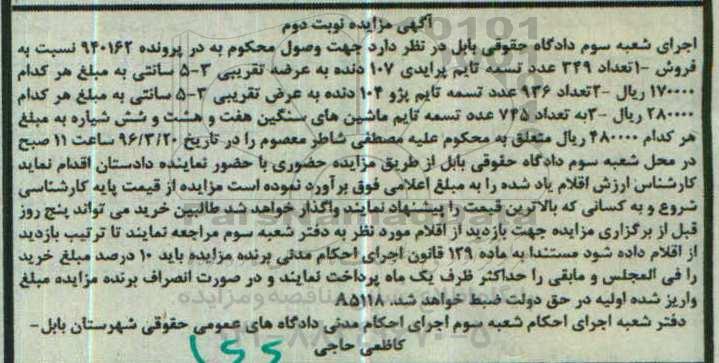 آگهی مزایده نوبت دوم
اجرای شعبه سوم دادگاه حقوقی بابل در نظر دارد جهت وصول محکوم به در پرونده ۹۴۰۱۶۲ نسبت به
فروش -۱تعداد ۳۴۹ عدد تسمه تایم پرایدی ۱۰۷ دنده به عرضه تقریبی ۳-۵ سانتی به مبلغ هر کدام
۱۷۰۰۰۰ ریال -۲تعداد ۹۳۶ عدد تسمه تایم پژو ۱۰۴ دنده به عرض تقریبی ۳-۵ سانتی به مبلغ هر کدام
۲۸۰۰۰۰ ریال -۳به تعداد ۷۴۵ عدد تسمه تایم ماشین های سنگین هفت و هشت و شش شیاره به مبلغ
هر کدام ۴۸۰۰۰۰ ریال متعلق به محکوم علیه مصطفی شاطر معصوم را در تاریخ ۹۶/۳/۲۰ ساعت ۱۱ صبح
در محل شعبه سوم دادگاه حقوقی بابل از طریق مزایده حضوری با حضور نماینده دادستان اقدام نماید
کارشناس ارزش اقلام یاد شده را به مبلغ اعلامی فوق برآورد نموده است مزایده از قیمت پایه کارشناسی
شروع و به کسانی که بالاترین قیمت را پیشنهاد نمایند واگذار خواهد شد طالبین خرید می تواند پنج روز
قبل از برگزاری مزایده جهت بازدید از اقلام مورد نظر به دفتر شعبه سوم مراجعه نمایند تا ترتیب بازدید
از اقلام داده شود مستندا به ماده ۱۳۹ قانون اجرای احکام مدنی برنده مزایده باید ۱۰ درصد مبلغ خرید
را فی المجلس و مابقی را حداکثر ظرف یک ماه پرداخت نمایند و در صورت انصراف برنده مزایده مبلغ
واریز شده اولیه در حق دولت ضبط خواهد شد. ۸۵۱۱۸
دفتر شعبه اجرای احکام شعبه سوم اجرای احکام مدنی دادگاه های عمومی حقوقی شهرستان بابل-
کاظمی حاجی